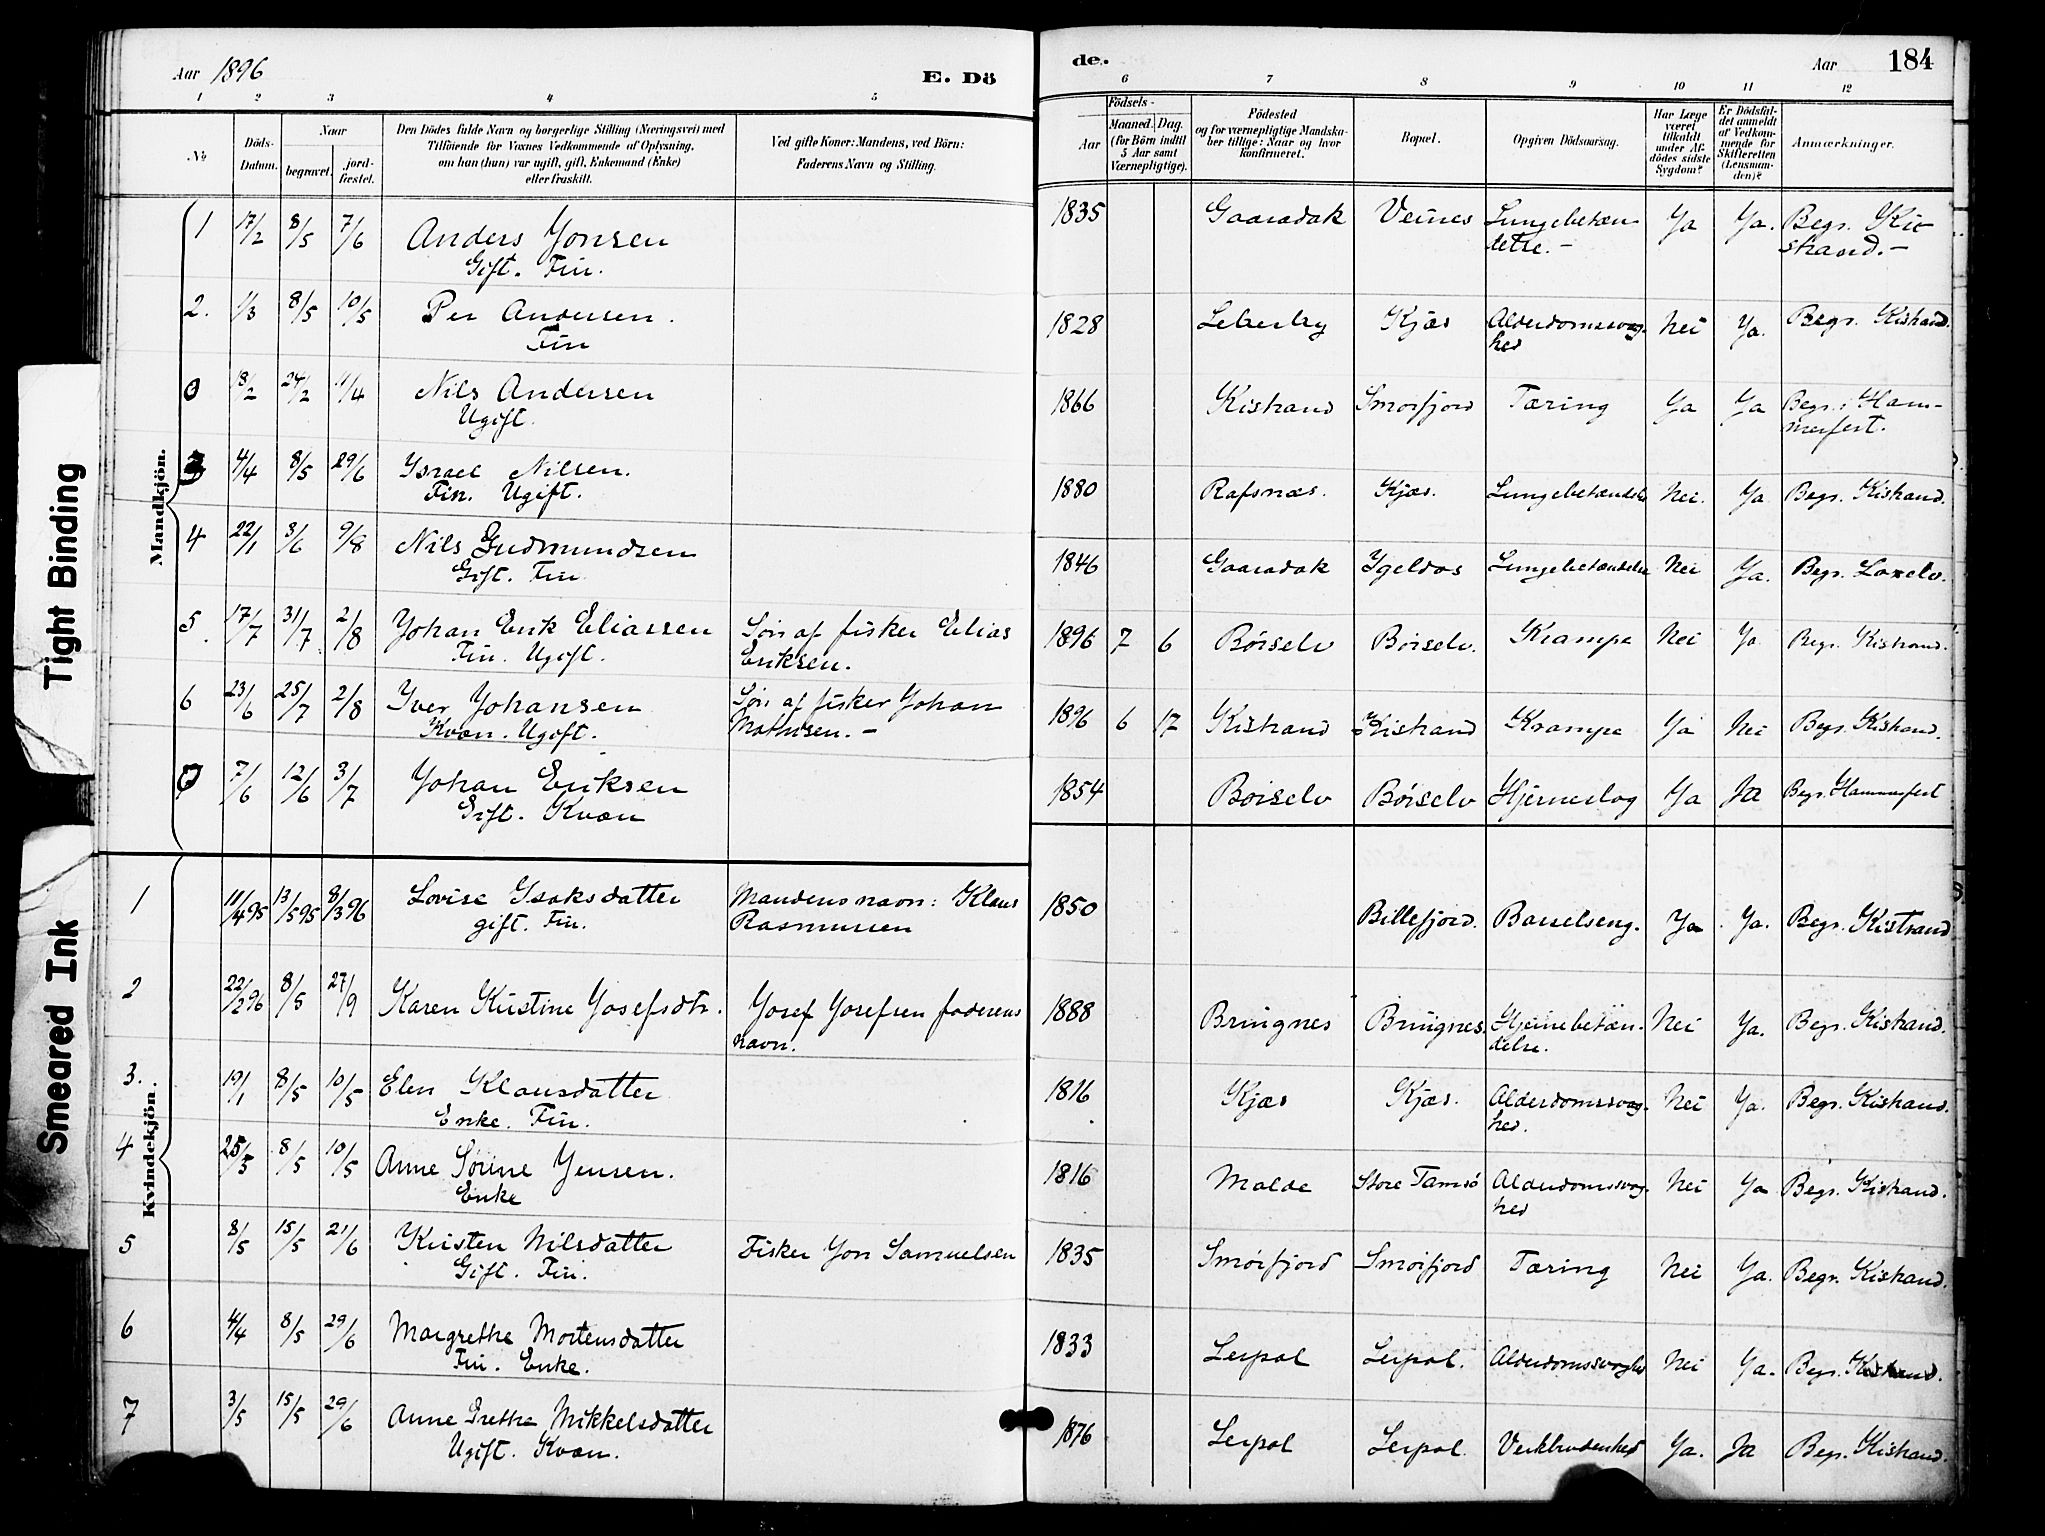 Aar 1896
E. Dö
1 2 3 4 5
№
Döds-
Datum.
Naar
begravet.
jord-
fæstet.
Den Dödes fulde Navn og borgerlige Stilling (Næringsvei) med
Tilföiende for Voxnes Vedkommende af Oplysning,
om han (hun) var ugift, gift, Enkemand (Enke)
eller fraskilt.
Ved gifte Koner: Mandens, ved Börn:
Faderens Navn og Stilling.
Mandkjön.
1 17/2 8/5 7/6 Anders Jonsen
Gift. Fin.
2. 1/3 8/5 10/5 Per Andersen.
Fin
0 18/2 24/2 11/4 Nils Andersen
Ugift.
3 4/4 8/5 29/6 Israel Nilsen.
Fin. Ugift.
4 22/1 3/6 9/8 Nils Gudmundsen
Gift. Fin
5 17/7 31/7 2/8 Johan Erik Eliassen Søn af fisker Elias
Fin. Ugift. Eriksen.
6 23/6 25/7 2/8 Iver Johansen Søn af fisker Johan
Kvæn. Ugift. Mathisen. –
7 7/6 12/6 3/7 Johan Eriksen
Gift. Kvæn
Kvindekjön
1 11/4 95 13/5 95 8/3 96 Lovise Isaksdatter Mandens navn: Klaus
gift. Fin. Rasmussen
2 22/2 96 8/5 27/9 Karen Kristine Josefsdtr. Josef Josefsen faderens
navn.
3. 19/1 8/5 10/5 Elen Klausdatter
Enke. Fin.
4 25/3 8/5 10/5 Anne Sørine Jensen.
Enke
5 8/5 15/5 21/6 Kristen Nilsdatter Fisker Jon Samuelsen
Gift. Fin.
6 4/4 8/5 29/6 Margrethe Mortensdatter
Fin. Enke.
7 3/5 15/5 29/6 Anne Grethe Mikkelsdatter
Ugift. Kvæn.
de.
Aar 184
6 7 8 9 10 11 12
Födsels-
Aar
Maaned. Dag.
(for Börn indtil
5 Aar samt
Værnepligtige).
Födested
og for værnepligtige Mandska-
ber tillige: Naar og hvor
konfirmeret.
Bopæl.
Opgiven Dödsaarsag.
Har Læge
været
tilkaldt
under Af-
dödes sidste
Sygdom?
Er Dödsfal-
det anmeldt
af Vedkom-
mende for
Skifteretten
(Lensman-
den)?
Anmærkninger.
1835 Gaaradak Veines Lungebetæn- Ja Ja. Begr. Ki-
delse. – strand. –
1828 Kjæs Alderdomssvag- Nei Ja. Begr. Kistrand.
hed
1866 Kistrand Smørfjord Tæring Ja Ja Begr. i Ham-
merfest.
1880 Rafsnæs. Kjæs. Lungebetændelse Nei. Ja Begr. Kistrand.
1846 Gaaradak Igeldas Lungebetændelse Nei Ja. Begr. Laxelv.
1896 7 6 Børselv Børselv. Krampe Nei Ja Begr. Kistrand.
1896 6 17 Kistrand Kistrand Krampe Ja Nei Begr. Kistrand.
1854 Børselv Børselv Hjerneslag Ja Ja Begr. Hammerfest
1850 Billefjord. Barselseng. Ja Ja. Begr. Kistrand
1888 Bringnes Bringnes. Hjernebetæn- Nei Ja. Begr. Kistrand.
delse.
1816 Kjæs Kjæs. Alderdomssvag- Nei Ja. Begr. Kistrand.
hed.
1816 Molde Store Tamsø Alderdomssvag- Nei Ja Begr. Kistrand.
hed
1835 Smørfjord Smørfjord Tæring Nei Ja. Begr. Kistrand.
1833 Lerpol Lerpol. Alderdomssvaghed Nei Ja. Begr. Kistrand.
1876 Lerpol Lerpol. Ja. Ja Begr. Kistrand.
Tight Binding
Smeared Ink